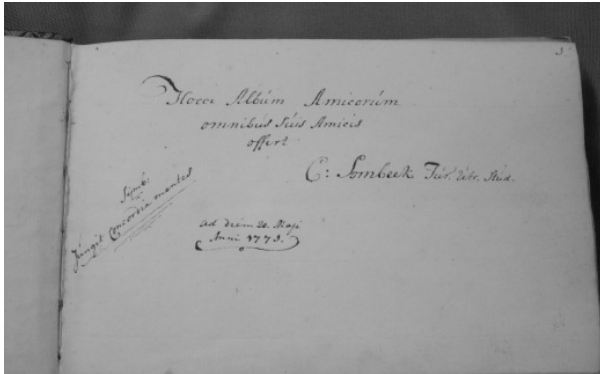 3.
Hocce Albúm Amicorúm
omnibús súis Amicis
offert
C: Sombeek Júr. útr. Stúd.
Simb:
Júngit Concordia mentes
ad diem 20. Maji
Anni 1773.